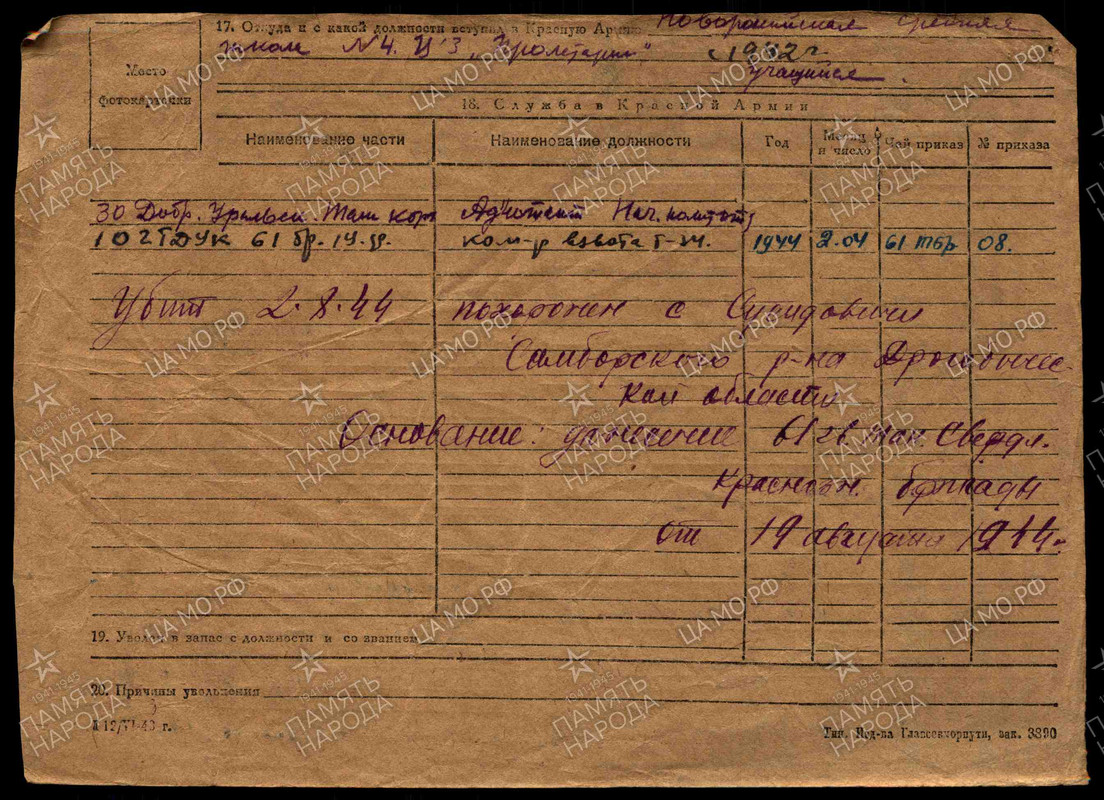 17. Откуда и с какой должности вступил в Красную Армию Новороссийская средняя
школа №4. "Пролетарий" с 1942 г.
учащийся.
Место
фотокарточки
18. Служба в Красной Армии
Наименование части Наименование должности Год Месяц и число Чей приказ № приказа
30 Добр. Уральск Танк Корп Нач.
102 61 бр. ком-р взвота Т-34. 1944 2.04 61 тбр 08.
Убит 2.8.44 похоронен с
Самборского р-на Дрогобычес-
кой области
Основание: донесение 61 гв. тан. Свердл.
Краснозн. бригады
от 19 августа 1944 г.
19. Уволен в запас с должности и со званием
20. Причины увольнения
12/VI-43 г.
Тип. Изд-ва Главсевморпути, зак. 3890
ЦА МО РФ
1941-1945
ПАМЯТЬ
НАРОДА